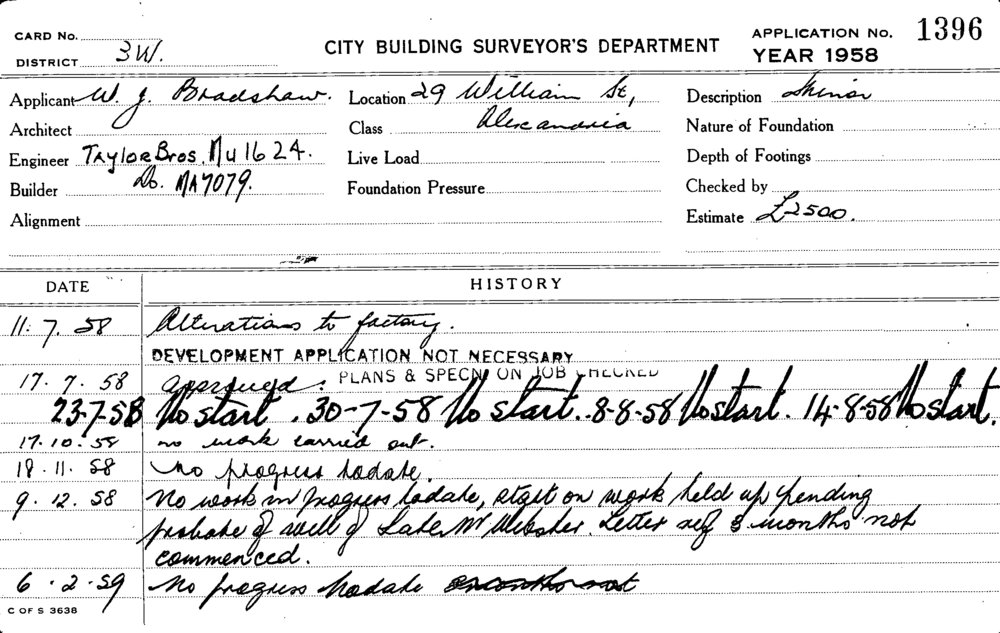 CARD No.
DISTRICT 3W.
CITY BUILDING SURVEYOR'S DEPARTMENT
APPLICATION No. 1396
YEAR 1958
Applicant W. J. Bradshaw. Location 29 William St, Description Minor
Architect Class Alexandria Nature of Foundation
Engineer Taylor Bros. MU 1624. Live Load Depth of Footings
Builder Do. MA7079. Foundation Pressure Checked by
Alignment Estimate £2500.
DATE HISTORY
11. 7. 58 Alterations to factory.
DEVELOPMENT APPLICATION NOT NECESSARY
17. 7. 58 approved. PLANS & SPECN ON JOB CHECKED
23-7-58 No start. 30-7-58 No start. 8-8-58 No start. 14-8-58 No start.
17. 10. 58 no work carried out.
18. 11. 58 No progress todate.
9. 12. 58 No work in progress todate, start on work held up pending
probate of will of Late Mr Webster. Letter ref 3 months not
commenced.
6. 2. 59 No progress todate
C OF S 3638